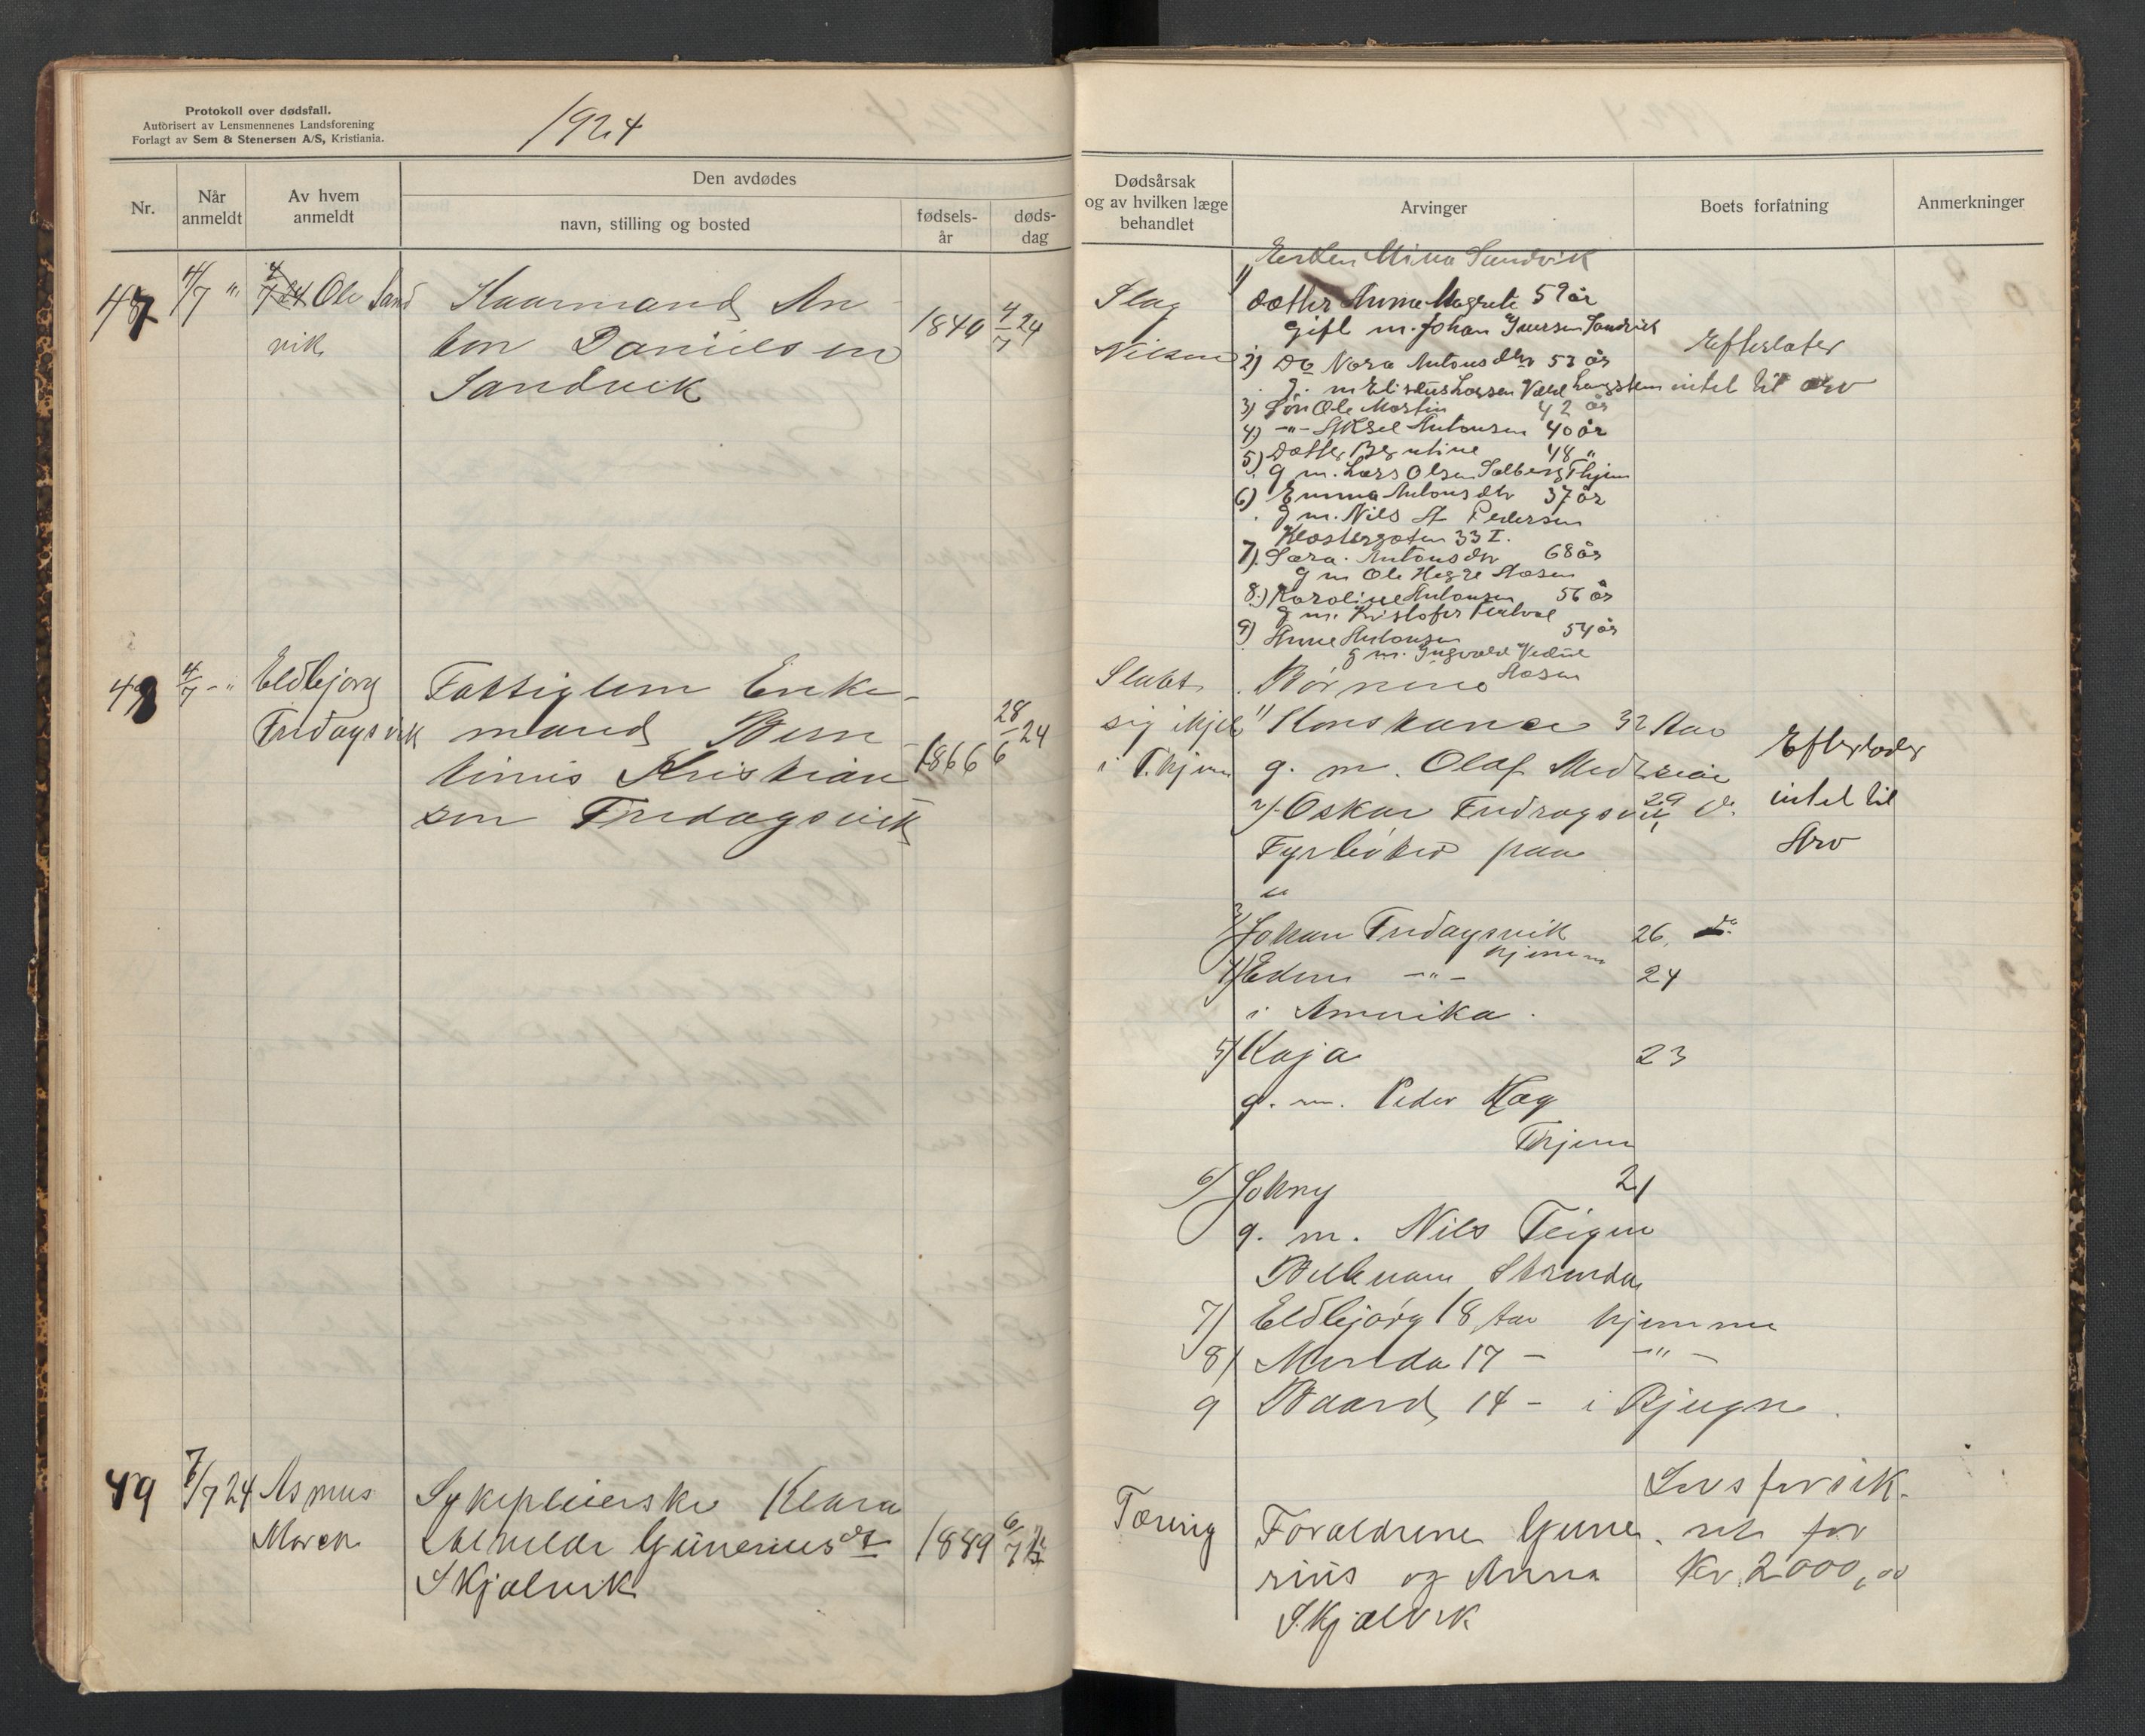 Protokoll over dødsfall.
Autorisert av Lensmennenes Landsforening
Forlagt av Sem & Stenersen A/S, Kristiania.
1924
Nr.
Når anmeldt
Av hvem anmeldt
Den avdødes
navn, stilling og bosted
fødsels-år
døds-dag
Dødsårsak og av hvilken læge behandlet
Arvinger
Boets forfatning
Anmerkninger
47
4/7 "
Ole Sand
vik
Kaarmand An
ton Danielsen
Sandvik
1840
4/7 24
Slag
Nilsen
Enken Mina Sandvik
1) datter Anna Magrete 59 år
gift m. Johan Iversen Sandvik
2) Do Nora Antonsdtr 53 år
g. m Larsen
3) Søn Ole Martin 42 år
4) -"- Aksel Antonsen 40 år
5) Datter Berntine 48 "
g m. Lars Olsen Solberg Thjem
6) Emma Antonsdtr 37 år
g m. Nils A Pedersen
Klostergaten 33 I.
7) Sara Antonsdtr 68 år
g m Ole Hegge Aasen
8) Karoline Antonsen 56 år
g m. Kristofer
9) Anne Antonsen 54 år
g m. Ingvald
Aasen
Efterlater
intet til arv
48
4/7 - "
Eldbjørg
Fredagsvik
Fattiglem Enke-
mand Bern
tinus Kristian
sen Fredagsvik
1866
28/6 24
Slaat
sig ihjel
i T.hjem
Børnene
1) Konstance 32 Aar
g. m. Olaf
2) Oskar Fredagsvik 29 d.
Fyrbøter paa
3) Johan Fredagsvik 26 do
hjemme
4) Edvin -"- 24
i Amerika.
5) Kaja 23
g. m. Peder Hag
Thjem
6) Johny 21
g. m. Nils Teigen
Strinda
7) Eldbjørg 18 Aar hjemme
8) Minda 17 - -"-
9 Baard 14 - i Bjugn.
Efterlader
intet til
Arv
49
7/7 24
Asmus
Moren
Sykepleierske Klara
Gunerius dt
Skjælvik
1889
6/7 24
Tæring
Forældrene Gune
rius og Anna
Skjælvik
Livsforsik-
ret for
Kr. 2000,00